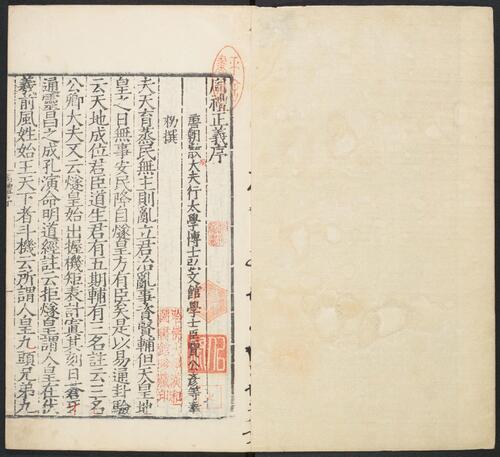 周禮正義序
唐朝散大夫行太學博士弘文館學士臣賈公彥等奉
勑撰
夫天育蒸民無主則亂立君治亂事資賢輔但天皇地
皇之日無事安民降自燧皇方有臣矣是以易通卦驗
云天地成位君臣道生君有五期輔有三名註云三名
公卿大夫又云燧皇始出握機矩表計寘其刻曰蒼牙
通靈昌之成孔演命明道經註云拒燧皇謂人皇在伏
羲前風姓始王天下者斗機云所謂人皇九頭兄弟九